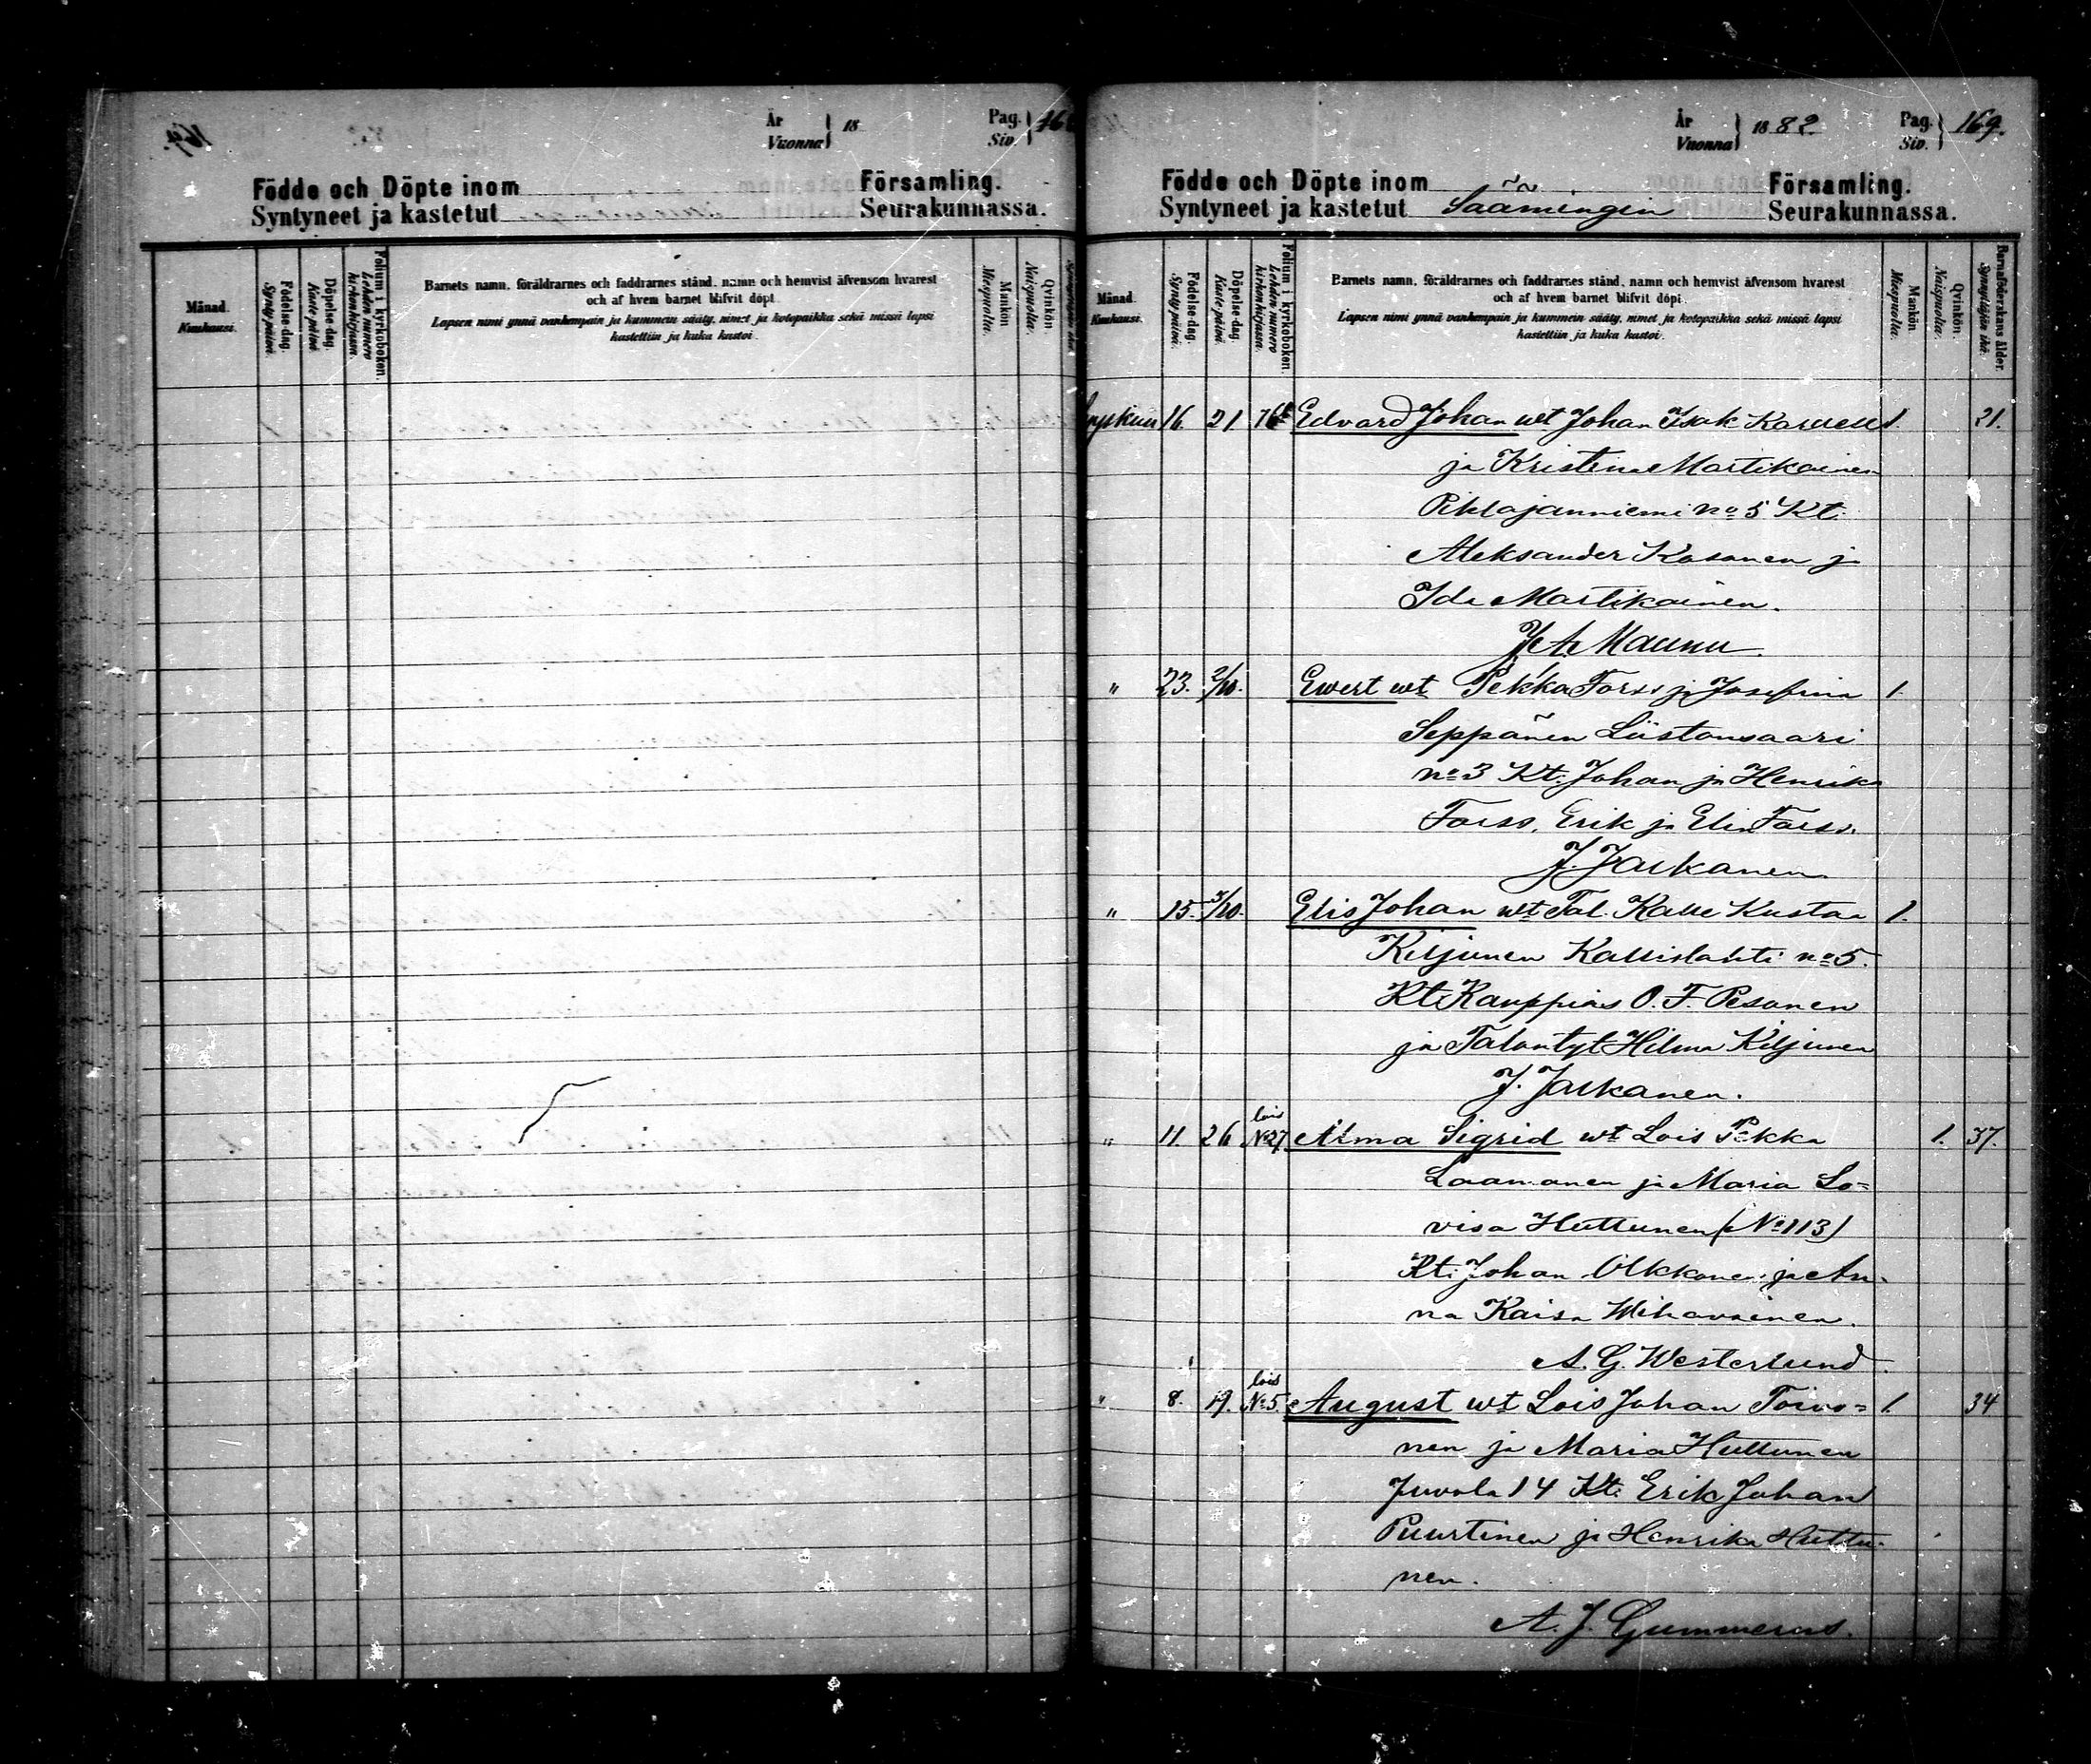 169.
År
Vuonna
18
Pag.
Siv.
Födde och Döpte inom
Församling.
Syntyneet ja kastetut
Seurakunnassa.
Månad.
Kuukausi.
Födelse-dag.
Syntypäivä.
Döpelse-dag.
Kastepäivä.
Folium i kyrkoboken.
Lehden numero kirkonkirjassa.
Barnets namn, föräldrarnes och faddrarnes stånd, namn och hemvist äfvensom hvarest
och af hvem barnet blifvit döpt.
Lapsen nimi ynnä vanhempain ja kummein sääty, nimet ja kotopaikka sekä missä lapsi
kastettiin ja kuka kastoi.
Mankön.
Miespuolia.
Qvinkön.
Naispuolia.
År
Vuonna
1882.
Pag.
Siv.
169.
Födde och Döpte inom
Församling.
Syntyneet ja kastetut Sääminigin Seurakunnassa.
Månad.
Kuukausi.
Födelse-dag.
Syntypäivä.
Döpelse-dag.
Kastepäivä.
Folium i kyrkoboken.
Lehden numero kirkonkirjassa.
Barnets namn, föräldrarnes och faddrarnes stånd, namn och hemvist äfvensom hvarest
och af hvem barnet blifvit döpt.
Lapsen nimi ynnä vanhempain ja kummein sääty, nimet ja kotopaikka sekä missä lapsi
kastettiin ja kuka kastoi.
Mankön.
Miespuolia.
Qvinkön.
Naispuolia.
Barnaföderskans ålder.
Synnyttäjän ikä.
Syyskuu 16. 21 Edvard Johan wt Johan Isak 1. 21.
ja Kristina Martikainen
Pihlajanniemi No 5 Kt.
Aleksander Kosonen ja
Ida Martikainen.
Maunu.
" 23. 2/10. Ewert wt Pekka Forss ja Josefina 1.
Seppänen Liistonsaari
No 3 Kt. Johan ja Henrika
Forss, Erik ja Elin Forss.
J. Jaskanen
" 15. 3/10. Elis Johan wt Tal. Kalle Kustaa 1.
Kiljunen Kallislahti No 5.
Kt: Kauppias O. F. Pesonen
ja Talontyt Hilma Kiljunen
J. Jaskanen.
lois
" 11. 26 No 27 Alma Sigrid wt Lois Pekka 1. 37.
Laamanen ja Maria Lo=
visa Huttunen (No 113)
Kt: Johan Olkkonen ja An-
na Kaisa Wihavainen.
A. G. Westerlund.
lois
" 8. 19. No 5. August wt Lois Johan Toivo= 1. 34
nen ja Maria Huttunen
Juvola 14 Kt. Erik Johan
Puurtinen ja Henrika Huttu-
nen.
A. J. Gummerus.